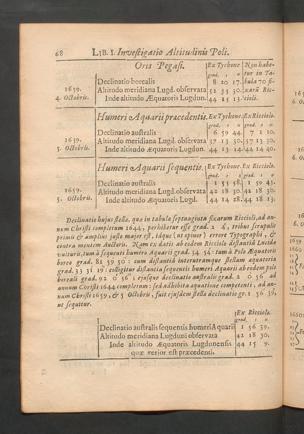 68 LIB. I. Investigatio Altitudinis Poli.
Oris Pegasi. Ex Tychone Non habe-
grad. tur in Ta-
Declinatio borealis 8 20 bula 70 fi-
1659. Altitudo meridiana Lugd. observata 52 xarū Ric-
4. Octobris. Inde altitudo Æquatoris Lugdun. 44 cioli.
Humeri Aquarii præcedentis. Ex Tychone. Ex Ricciolo.
Declinatio australis 6 59 44 7 2 10.
1659. Altitudo meridiana Lugd. observata 37 13 30. 37 13 30.
5. Octobris. Inde altitudo Æquatoris Lugdun. 44 13 14. 44 14 40.
Humeri Aquarii sequentis. Ex Tychone. Ex Ricciolo.
Declinatio australis 1 55 58. 1 59 45.
1659. Altitudo meridiana Lugd. observata 42 18 30. 42 18 30.
5. Octobris. Inde altitudo Æquatoris Lugdun. 44 14 28. 44 18 15.
Declinatio hujus stellæ, quæ in tabula septuaginta fixarum Riccioli, ad an-
num Christi completum 1644, perhibetur esse grad. 2 4, tribus scrupulis
primis & amplius justo major est, idque (ut opinor) errore Typographi, &
contra mentem Auctoris. Nam ex datis ab eodem Ricciolo distantiâ Lucida
vulturis, tum à sequenti humero Aquarii grad. 34 54: tum à Polo Æquatoris
boreo grad. 81 59 50: cum distantiâ interutramque stellam æquatoria
grad. 33 31 19: colligitur distantia sequentis humeri Aquarii ab eodem polo
boreali grad. 92 0 56; ejusque declinatio australis grad. 2 0 56 ad
annum 1644 completum: sed adhibita æquatione competenti, ad an-
num Christi 1659, & 5 Octobris, fuit ejusdem stellæ declinatio gr. 1 56 39,
ut sequitur.
Ex Ricciolo.
Declinatio australis sequentis humeri Aquarii 1 56 39.
Altitudo meridiana Lugduni observata 42 18 30.
Inde altitudo Æquatoris Lugdunensis 44 15 9.
quæ verior est præcedenti.